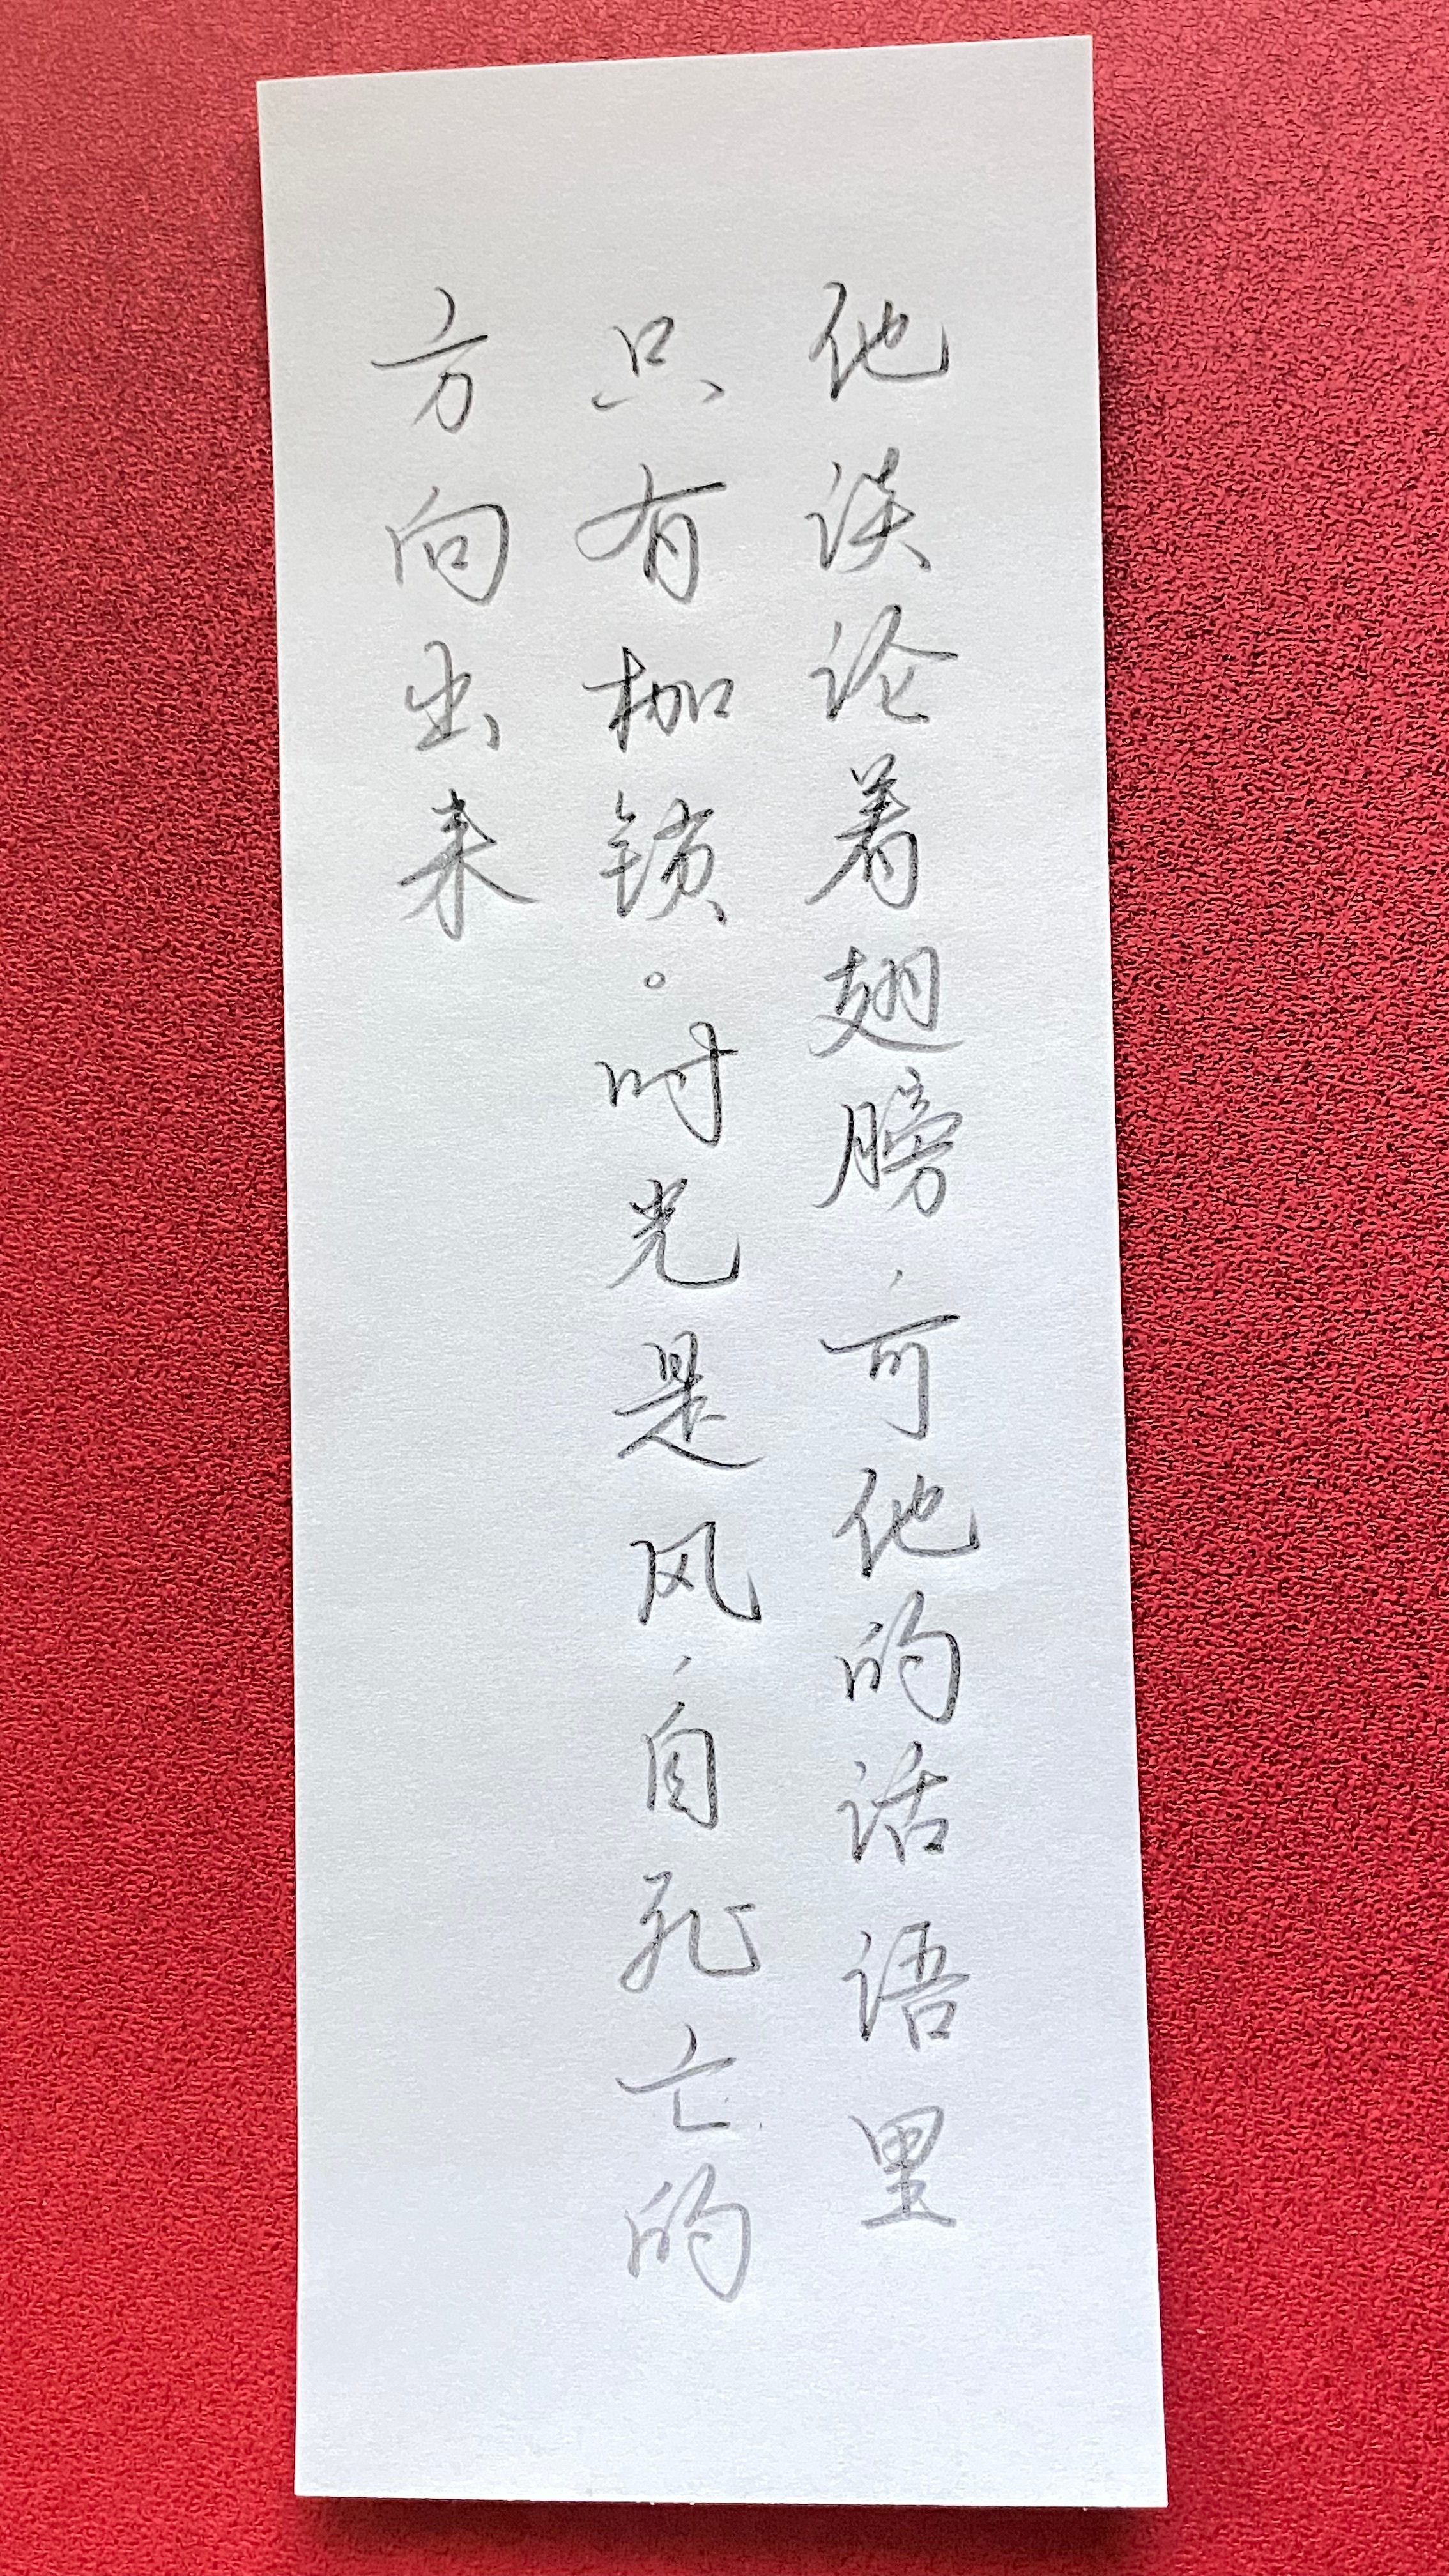 他谈论着翅膀，可他的话语里
只有枷锁。时光是风，自死亡的
方向出来